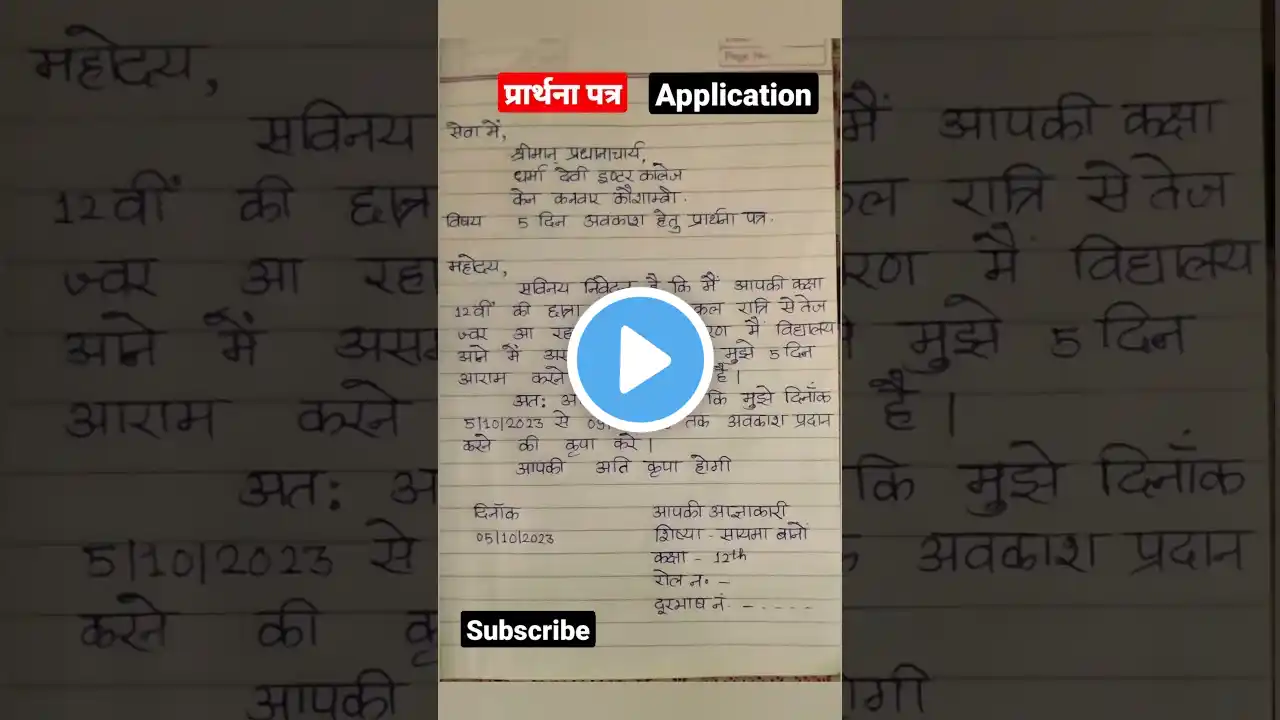 प्रार्थना पत्र Application
सेवा में,
श्रीमान् प्रधानाचार्य,
धर्मा देवी इण्टर कालेज
केन कनवार कौशाम्बी.
विषय 5 दिन अवकाश हेतु प्रार्थना पत्र.
महोदय,
सविनय निवेदन है कि मैं आपकी कक्षा
12वीं की छात्रा कल रात्रि से तेज
ज्वर आ रहा मैं विद्यालय
आने में मुझे 5 दिन
आराम करने है।
अतः कि मुझे दिनाँक
5/10/2023 से तक अवकाश प्रदान
करने की कृपा करे।
आपकी अति कृपा होगी
दिनाँक आपकी आज्ञाकारी
05/10/2023 शिष्या - सायमा बानो
कक्षा - 12th
रोल न० -
दूरभाष नं. - . - - - -
Subscribe